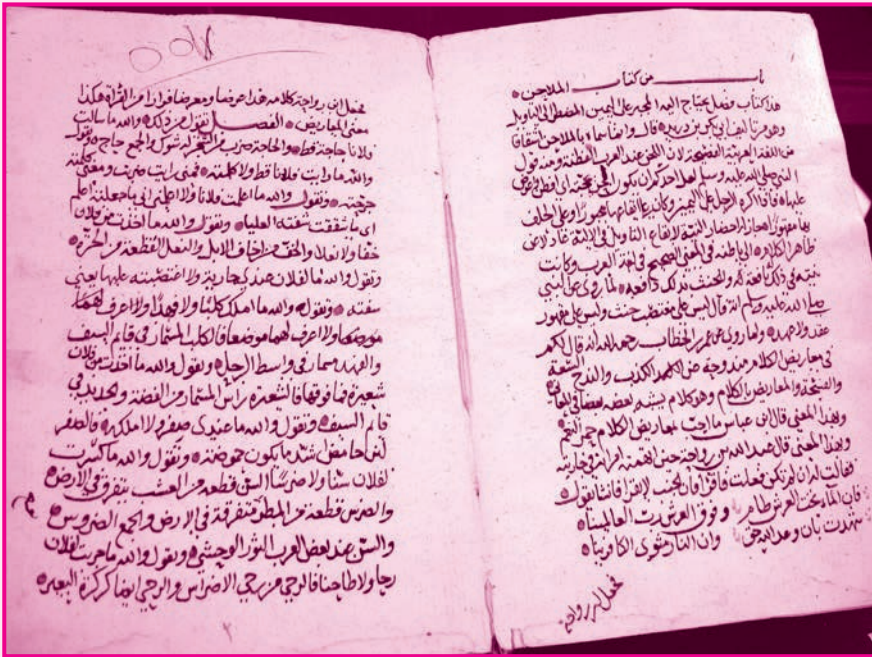 باب من كتاب الملاحن
هذا كتاب وفصل يحتاج اليه المجبر على اليمين المضطر الى التاويل
وهو مما لابي بكر بن دريد قال وانما سماه بالملاحن اشتقاقا
من اللغة العربية الفصيحة لان اللحن عند العرب الفطنة ومنه قول
النبي صلى الله عليه وسلم لعل احدكم ان يكون الحن بحجته اي افطن واغوص
عليها فاذا اكره الرجل على اليمين وكان انما فيها مجبورا وعلى الحلف
بها مقهورا جاز احضار النية لايقاع التاويل في الالية عادلا عن
ظاهر الكلام الى باطنه في المعنى الصحيح في لغة العرب وكانت
نيته في ذلك نافعة له والحنث بذلك دافعة لما روي عن النبي
صلى الله عليه وسلم انه قال ليس على مغتصب حنث وليس على مقهور
عقد ولا عهد ولما روي عن عمر بن الخطاب رحمه الله انه قال لكم
في معاريض الكلام مندوحة عن الكذب والندح السعة
والفسحة والمعاريض الكلام وهو كلام يشبه بعضه بعضا في المعاني
وبهذا المعنى قال ابن عباس ما احب بمعاريض الكلام حمر النعم
وبهذا المعنى قال عبد الله بن رواحة حين اتهمته امراته في جاريته
فقالت له ان لم تكن فعلت فاقرا فان الجنب لا يقرا فانشا يقول
شهدت بان وعد الله حق وان النار مثوى الكافرينا
فان الماء تحت العرش طام وفوق العرش رب العالمينا
فجعل ابن رواحة
فجعل ابن رواحة كلامه هذا عرضا ومعرضا فرارا من القراة هكذا
معنى المعاريض الفصل تقول من ذلك والله ما سالت
فلانا حاجة قط والحاجة ضرب من الشجر له شوك والجمع حاج وتقول
والله ما رايت فلانا قط ولا كلمته فمعنى رايت ضربت ومعنى كلمته
جرحته وتقول والله ما اعلمت فلانا ولا اعلمني اي ما جعلته اعلم
اي ما شققت شفته العليا وتقول والله ما اخذت من فلان
خفا ولا نعلا والخف من اخفاف الابل والنعل القطعة من الحرة
وتقول والله ما لفلان عندي جارية ولا اغتصبته عليها يعني
سفينة وتقول والله ما املك كلبا ولا فهدا ولا اعرف لهما
موضعا ولا اعرف لهما موضعا فالكلب المسمار في قائم السيف
والفهد مسمار في واسط الرحل وتقول والله ما اخذت من فلان
شعيرة فما فوقها فالشعيرة راس المسمار من الفضة والحديد في
قائم السيف وتقول والله ما عندي صقر ولا املكه فالصقر
لبن حامض اشد ما يكون حموضة وتقول والله ما كسرت
لفلان سنا ولا ضرسا السن قطعة من العشب يتفرق في الارض
والضرس قطعة من المطر متفرقة في الارض والجمع الضروس
والسن عند بعض العرب الثور الوحشي وتقول والله ما خربت لفلان
رحا ولا طاحنا فالرحي من رحي الاضراس والرحي ايضا كركرة البعير